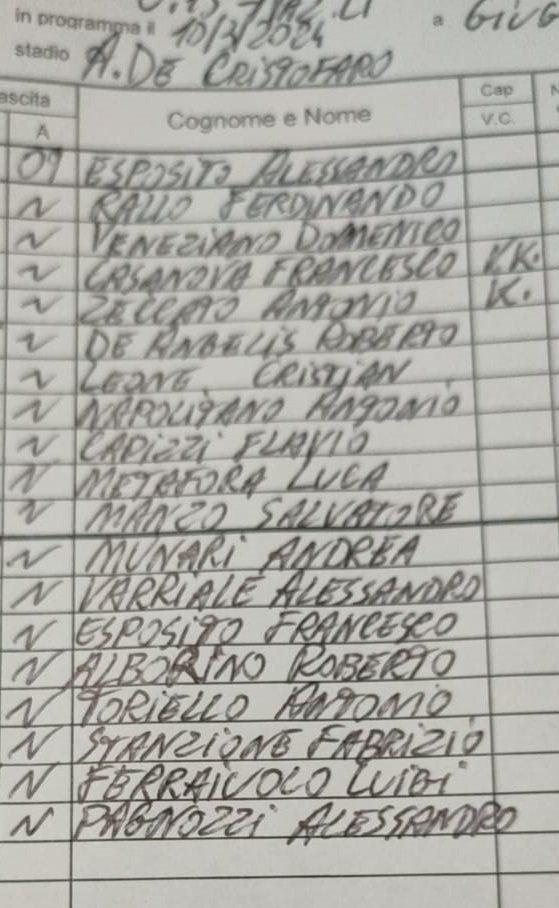 in programma il 10/3/2024 a GIUG
stadio A. DE CRISTOFARO
ascita Cognome e Nome Cap N
A V.C.
09 ESPOSITO ALESSANDRO
N RALLO FERDINANDO
N VENEZIANO DOMENICO
N CASANOVA FRANCESCO V.K.
N ZECCATO ANTONIO K.
N DE ANGELIS ROBERTO
N LEONE CRISTIAN
N NAPOLITANO ANTONIO
N CAPIZZI FLAVIO
N METAFORA LUCA
N MANZO SALVATORE
N MUNARI ANDREA
N VARRIALE ALESSANDRO
N ESPOSITO FRANCESCO
N ALBORINO ROBERTO
N TORIELLO ANTONIO
N STANZIONE FABRIZIO
N FERRAIUOLO LUIGI
N PAGNOZZI ALESSANDRO